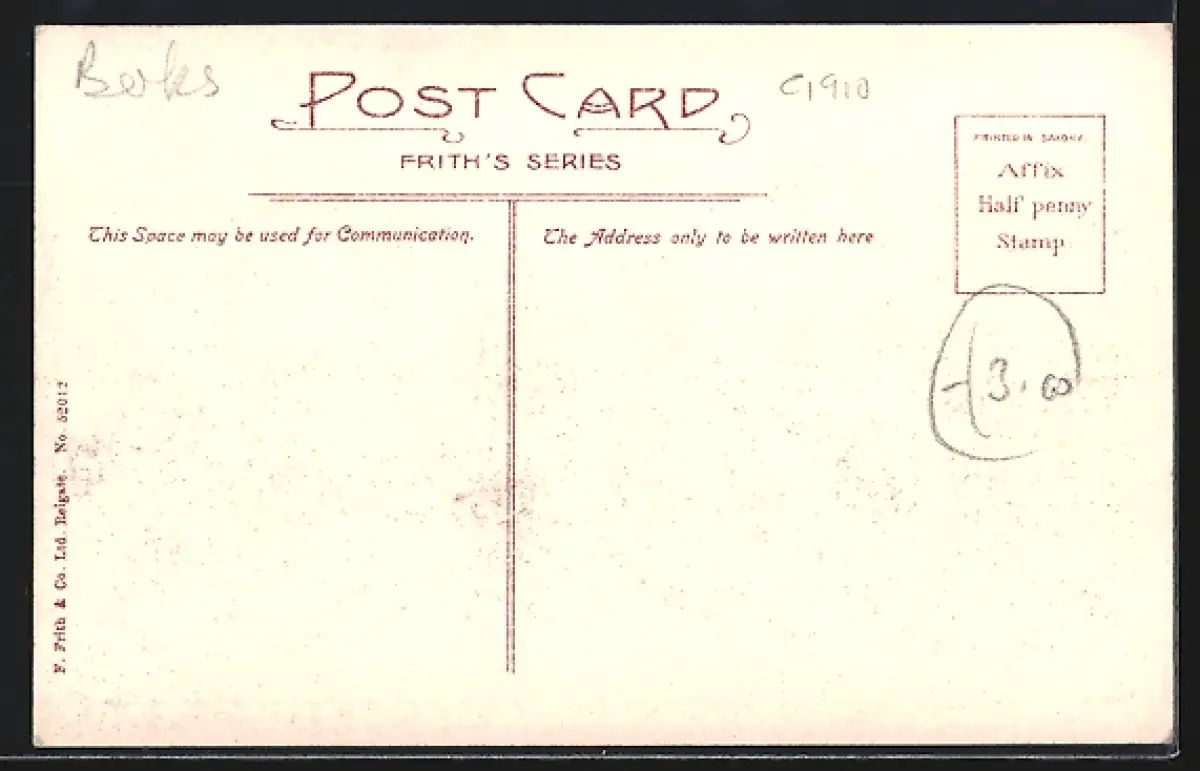 Berks
POST CARD
c1910
FRITH'S SERIES
PRINTED IN SAXONY.
Affix
Half penny
Stamp
This Space may be used for Communication.
The Address only to be written here
3.00
F. Frith & Co. Ltd. Reigate. No. 52012